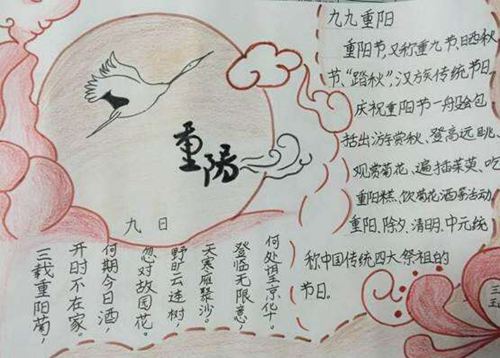 重阳
九日
三载重阳菊，
开时不在家。
何期今日酒，
忽对故园花。
野旷云连树，
天寒雁聚沙。
登临无限意，
何处望京华。
九九重阳
重阳节，又称重九节、晒秋
节、“踏秋”，汉族传统节日。
庆祝重阳节一般会包
括出游赏秋、登高远眺、
观赏菊花、遍插茱萸、吃
重阳糕、饮菊花酒等活动，
重阳、除夕、清明、中元统
称中国传统四大祭祖的
节日。